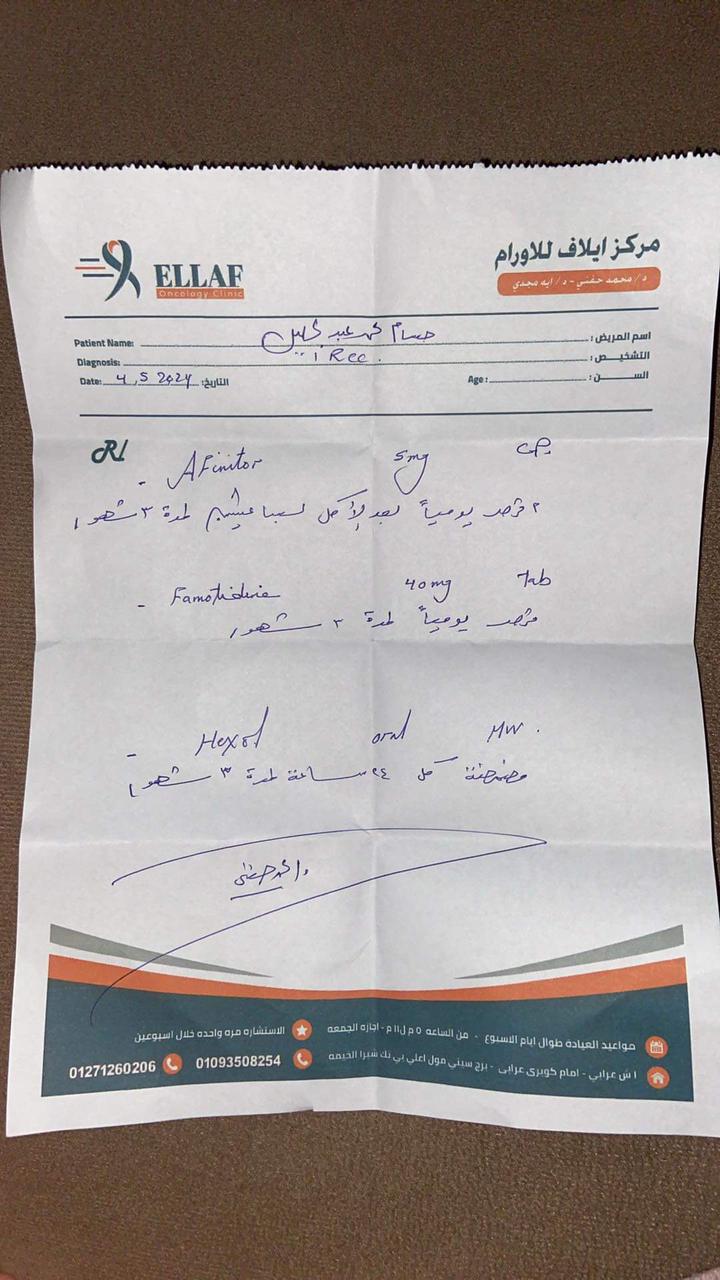 ELLAF
Oncology Clinic
مركز ايلاف للاورام
د/ محمد حفني - د/ ايه مجدي
Patient Name: حسام محمد عبد اسم المريض :
Diagnosis: RCC. التشخيص :
Date: 4, 5 2024 التاريخ:
Age : السن :
R/
- Afinitor 5mg
٢ قرص يومياً بعد الأكل لمدة ٣ شهور
- Famotidine 40mg Tab
قرص يومياً لمدة ٣ شهور
- Hexol oral MW.
مضمضة كل ٢٤ ساعة لمدة ٣ شهور
مواعيد العيادة طوال ايام الاسبوع - من الساعه ٥ م ل ١١ م - اجازه الجمعه
الاستشاره مره واحده خلال اسبوعين
١ ش عرابي - امام كوبري عرابى - برج سيتي مول اعلي بي تك شبرا الخيمه
01093508254
01271260206